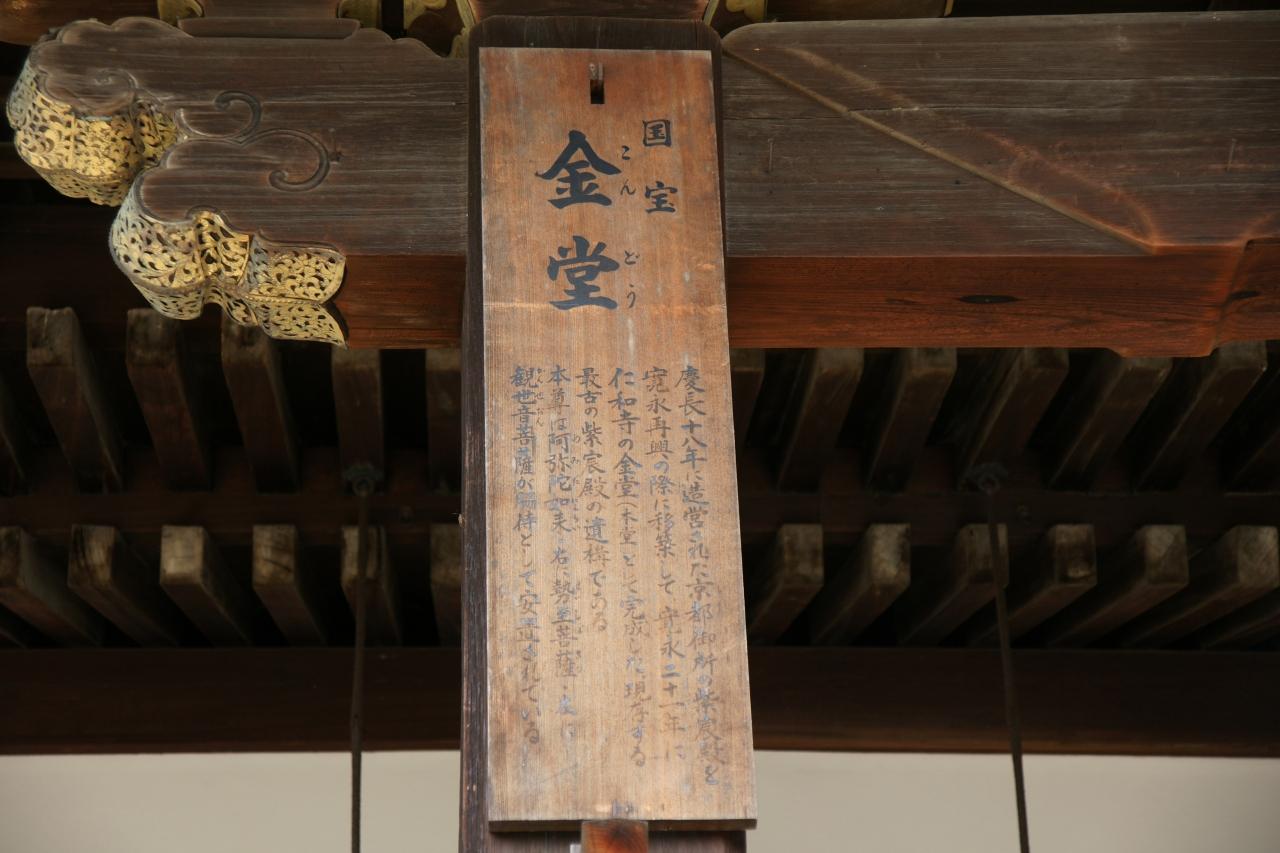 国宝
金堂
こんどう
慶長十八年に造営された京都御所の紫宸殿を
寛永再興の際に移築して寛永二十一年に
仁和寺の金堂（本堂）として完成した現存する
最古の紫宸殿の遺構である
本尊は阿弥陀如来・右に勢至菩薩・左に
観世音菩薩が脇侍として安置されている